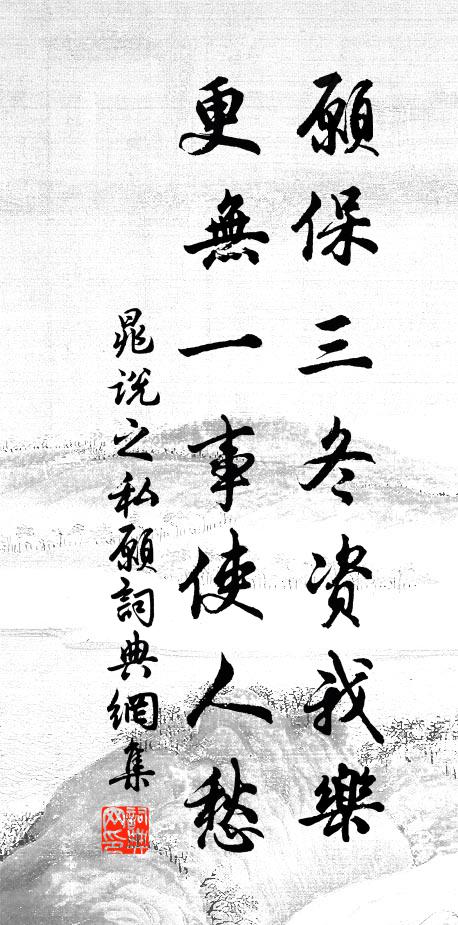 願保三冬資我樂
更無一事使人愁
晁說之私願詞典網集